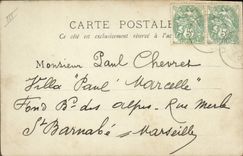 III
CARTE POSTALE
Ce côté est exclusivement réservé à l'ad
Monsieur Paul Chevret
Villa "Paul Marcelle"
Fond Bd des alpes. Rue Merle
St Barnabé Marseille
5 5